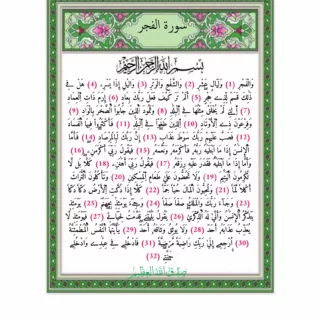 سورة الفجر
بِسْمِ اللَّهِ الرَّحْمَنِ الرَّحِيمِ
وَالْفَجْرِ (1) وَلَيَالٍ عَشْرٍ (2) وَالشَّفْعِ وَالْوَتْرِ (3) وَاللَّيْلِ إِذَا يَسْرِ، (4) هَلْ فِي
ذَلِكَ قَسَمٌ لِّذِي حِجْرٍ (5) أَلَمْ تَرَ كَيْفَ فَعَلَ رَبُّكَ بِعَادٍ (6) إِرَمَ ذَاتِ الْعِمَادِ
(7) الَّتِي لَمْ يُخْلَقْ مِثْلُهَا فِي الْبِلَدِ (8) وَثَمُودَ الَّذِينَ جَابُوا الصَّخْرَ بِالْوَادِ (9)
وَفِرْعَوْنَ ذِي الْأَوْتَادِ (10) الَّذِينَ طَغَوْا فِي الْبِلَدِ (11) فَأَكْثَرُوا فِيهَا الْفَسَادَ
(12) فَصَبَّ عَلَيْهِمْ رَبُّكَ سَوْطَ عَذَابٍ (13) إِنَّ رَبَّكَ لَبِالْمِرْصَادِ (14) فَأَمَّا
الْإِنسَنُ إِذَا مَا ابْتَلَهُ رَبُّهُ فَأَكْرَمَهُ وَنَعَّمَهُ (15) فَيَقُولُ رَبِّي أَكْرَمَنِ، (16)
وَأَمَّا إِذَا مَا ابْتَلَهُ فَقَدَرَ عَلَيْهِ رِزْقَهُ (17) فَيَقُولُ رَبِّي أَهَنَنِ، (18) كَلَّا بَل لَّا
تُكْرِمُونَ الْيَتِيمَ (19) وَلَا تَحُضُّونَ عَلَى طَعَامِ الْمِسْكِينِ (20) وَتَأْكُلُونَ التُّرَاثَ
أَكْلًا لَّمًّا (21) وَتُحِبُّونَ الْمَالَ حُبًّا جَمًّا (22) كَلَّا إِذَا دُكَّتِ الْأَرْضُ دَكًّا دَكًّا
(23) وَجَاءَ رَبُّكَ وَالْمَلَكُ صَفًّا صَفًّا (24) وَجِيءَ يَوْمَئِذٍ بِجَهَنَّمَ (25) يَوْمَئِذٍ
يَتَذَكَّرُ الْإِنسَنُ وَأَنَّى لَهُ الذِّكْرَى (26) يَقُولُ يَلَيْتَنِي قَدَّمْتُ لِحَيَاتِي (27) فَيَوْمَئِذٍ لَّا
يُعَذِّبُ عَذَابَهُ أَحَدٌ (28) وَلَا يُوثِقُ وَثَاقَهُ أَحَدٌ (29) يَأَيَّتُهَا النَّفْسُ الْمُطْمَئِنَّةُ
(30) ارْجِعِي إِلَى رَبِّكِ رَاضِيَةً مَّرْضِيَّةً (31) فَادْخُلِي فِي عِبَدِي وَادْخُلِي
جَنَّتِي (32)
صدق الله العظيم